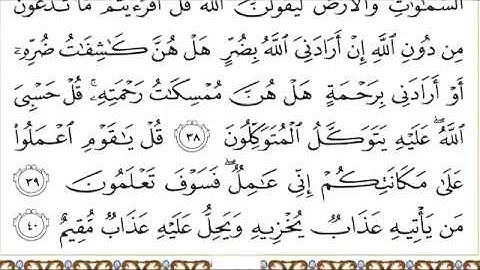 السَّمَٰوَٰتِ وَالْأَرْضَ لَيَقُولُنَّ اللَّهُ قُلْ أَفَرَءَيْتُم مَّا تَدْعُونَ
مِن دُونِ اللَّهِ إِنْ أَرَادَنِيَ اللَّهُ بِضُرٍّ هَلْ هُنَّ كَٰشِفَٰتُ ضُرِّهِۦٓ
أَوْ أَرَادَنِي بِرَحْمَةٍ هَلْ هُنَّ مُمْسِكَٰتُ رَحْمَتِهِۦ ۚ قُلْ حَسْبِيَ
اللَّهُ ۖ عَلَيْهِ يَتَوَكَّلُ الْمُتَوَكِّلُونَ ٣٨ قُلْ يَٰقَوْمِ اعْمَلُوا۟
عَلَىٰ مَكَانَتِكُمْ إِنِّي عَٰمِلٌ ۖ فَسَوْفَ تَعْلَمُونَ ٣٩
مَن يَأْتِيهِ عَذَابٌ يُخْزِيهِ وَيَحِلُّ عَلَيْهِ عَذَابٌ مُّقِيمٌ ٤٠